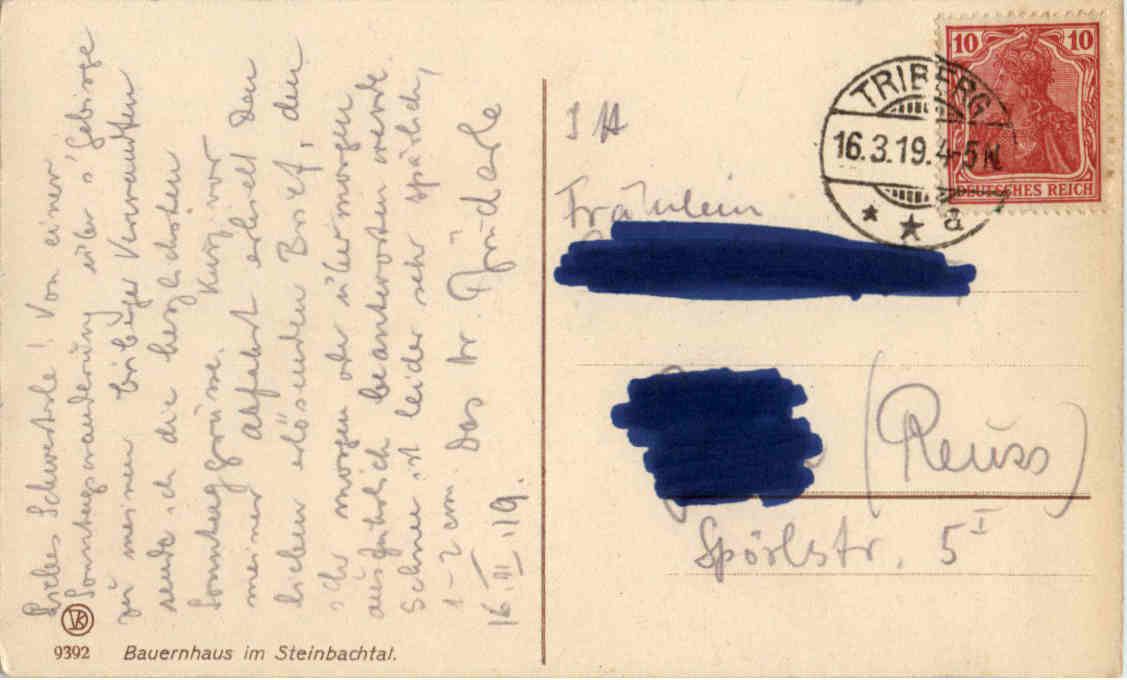 Liebes Schwesterle! Von einer
Sonntagswanderung über's Gebirge
zu meinen Verwandten
sende ich die herzlichsten
Sonntagsgrüsse. Kurz vor
meiner Abfahrt erhielt den
lieben erlösenden Brief, den
ich morgen oder übermorgen
ausführlich beantworten werde.
Schnee ist leider sehr spärlich,
1-2 cm. Das Br
16. III. 19.
9392 Bauernhaus im Steinbachtal.
10 10
DEUTSCHES REICH
TRIBERG
16.3.19.4-5N.
a
Fräulein
(Reuss)
Spörlstr. 5 I